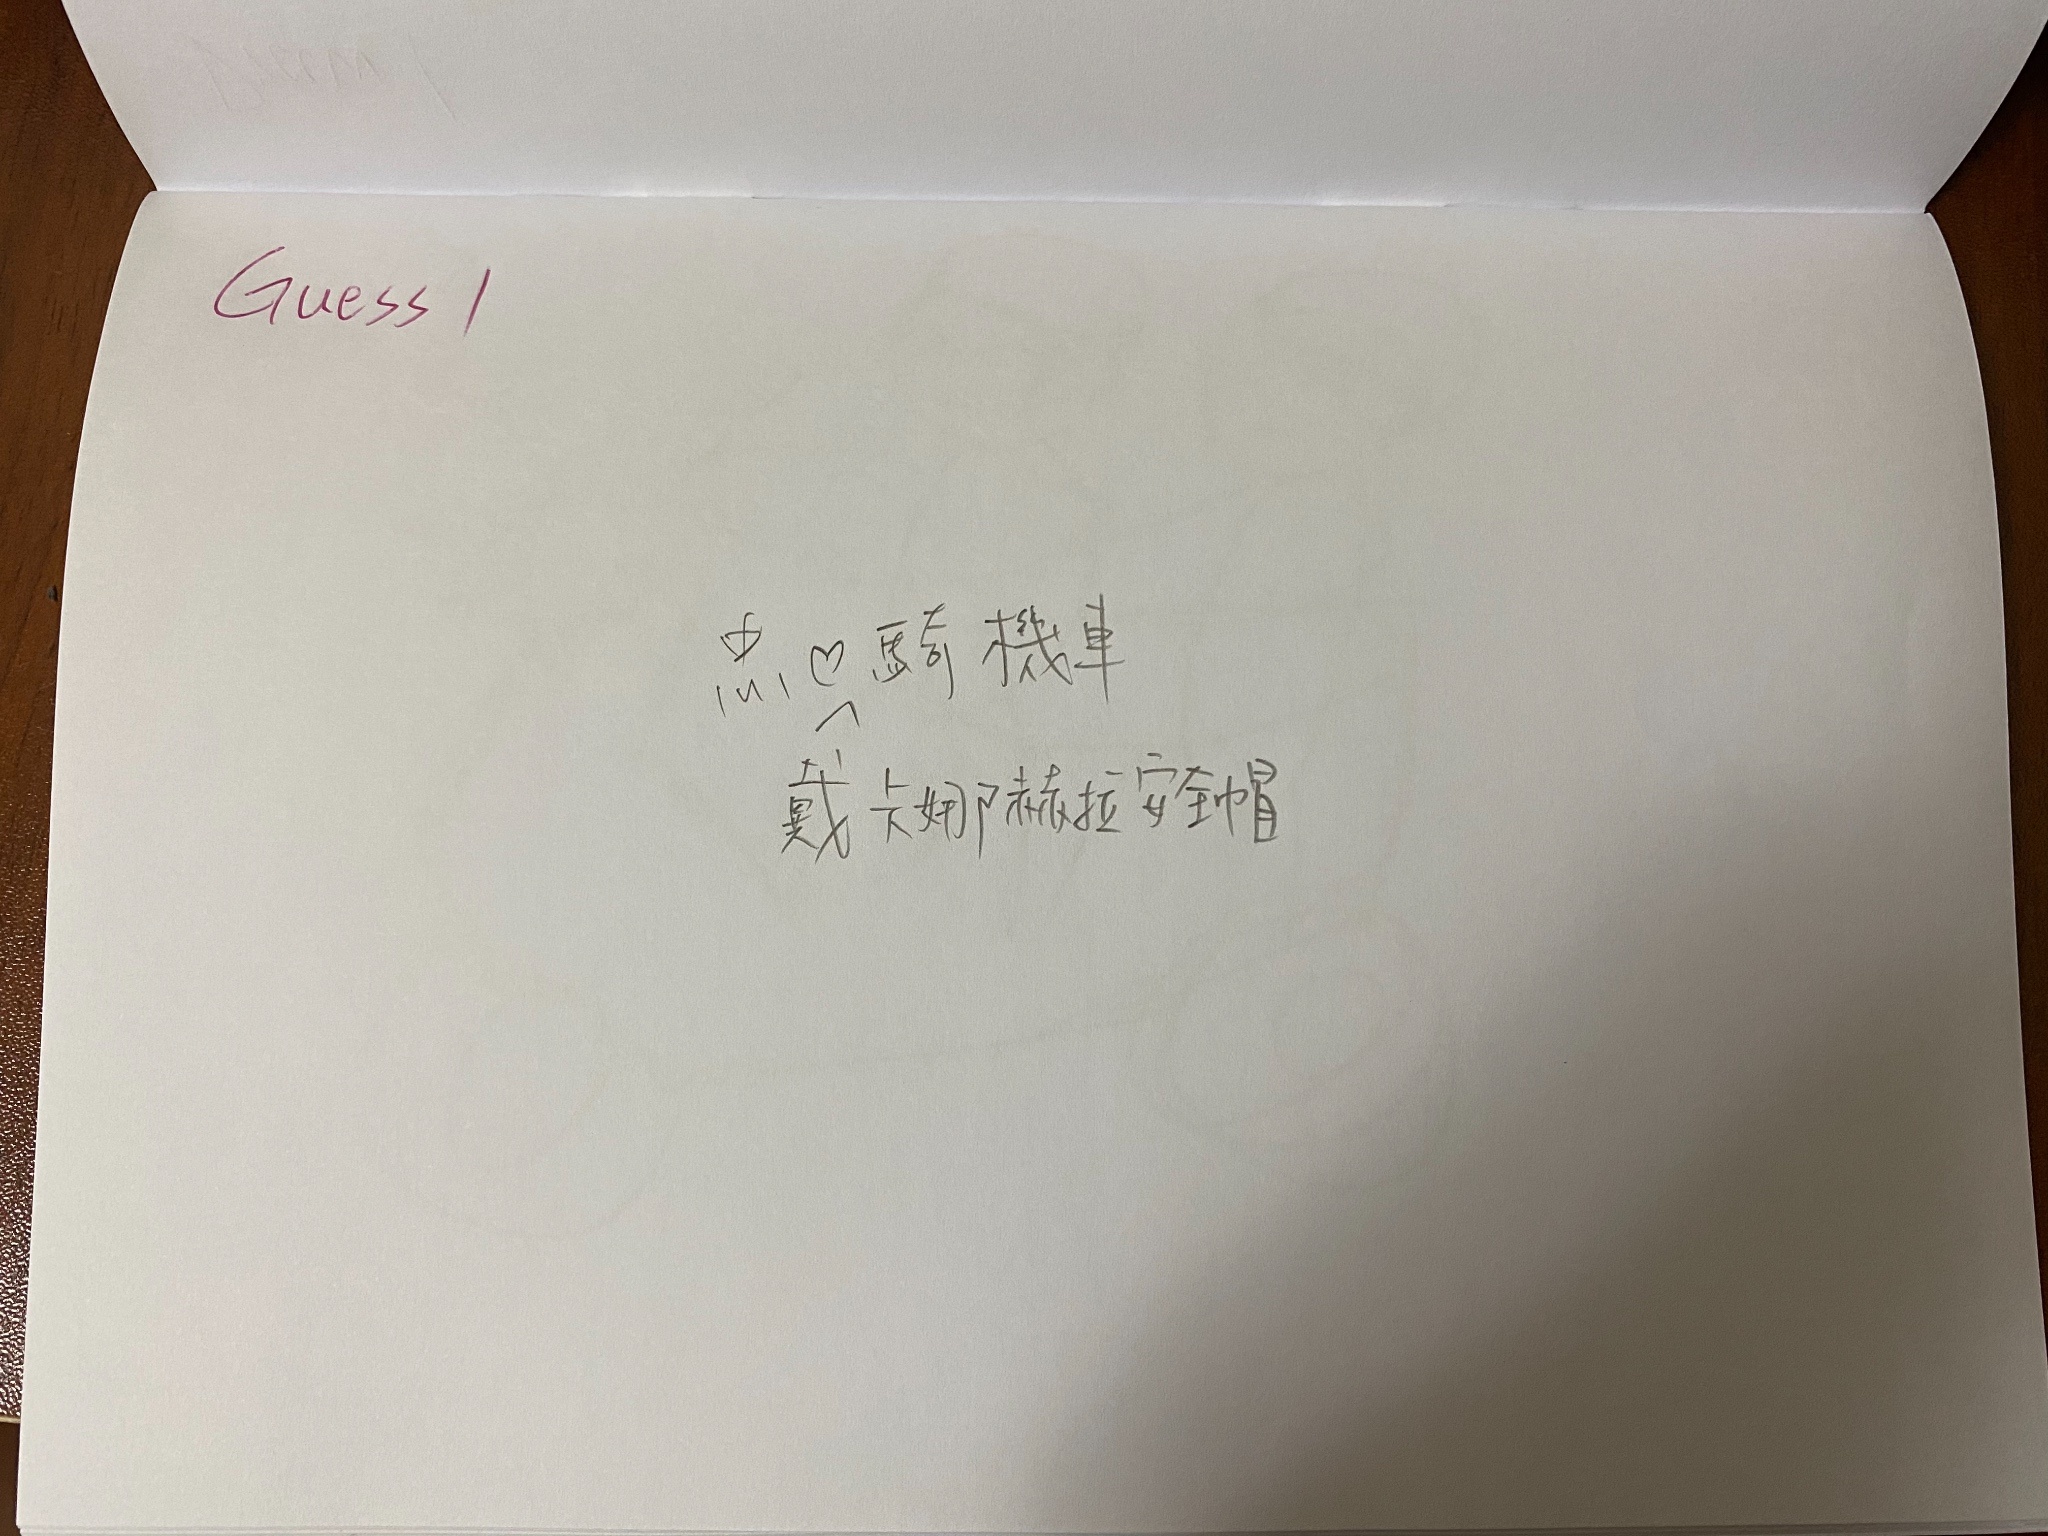 Guess 1
点心騎機車
戴卡娜赫拉安全帽